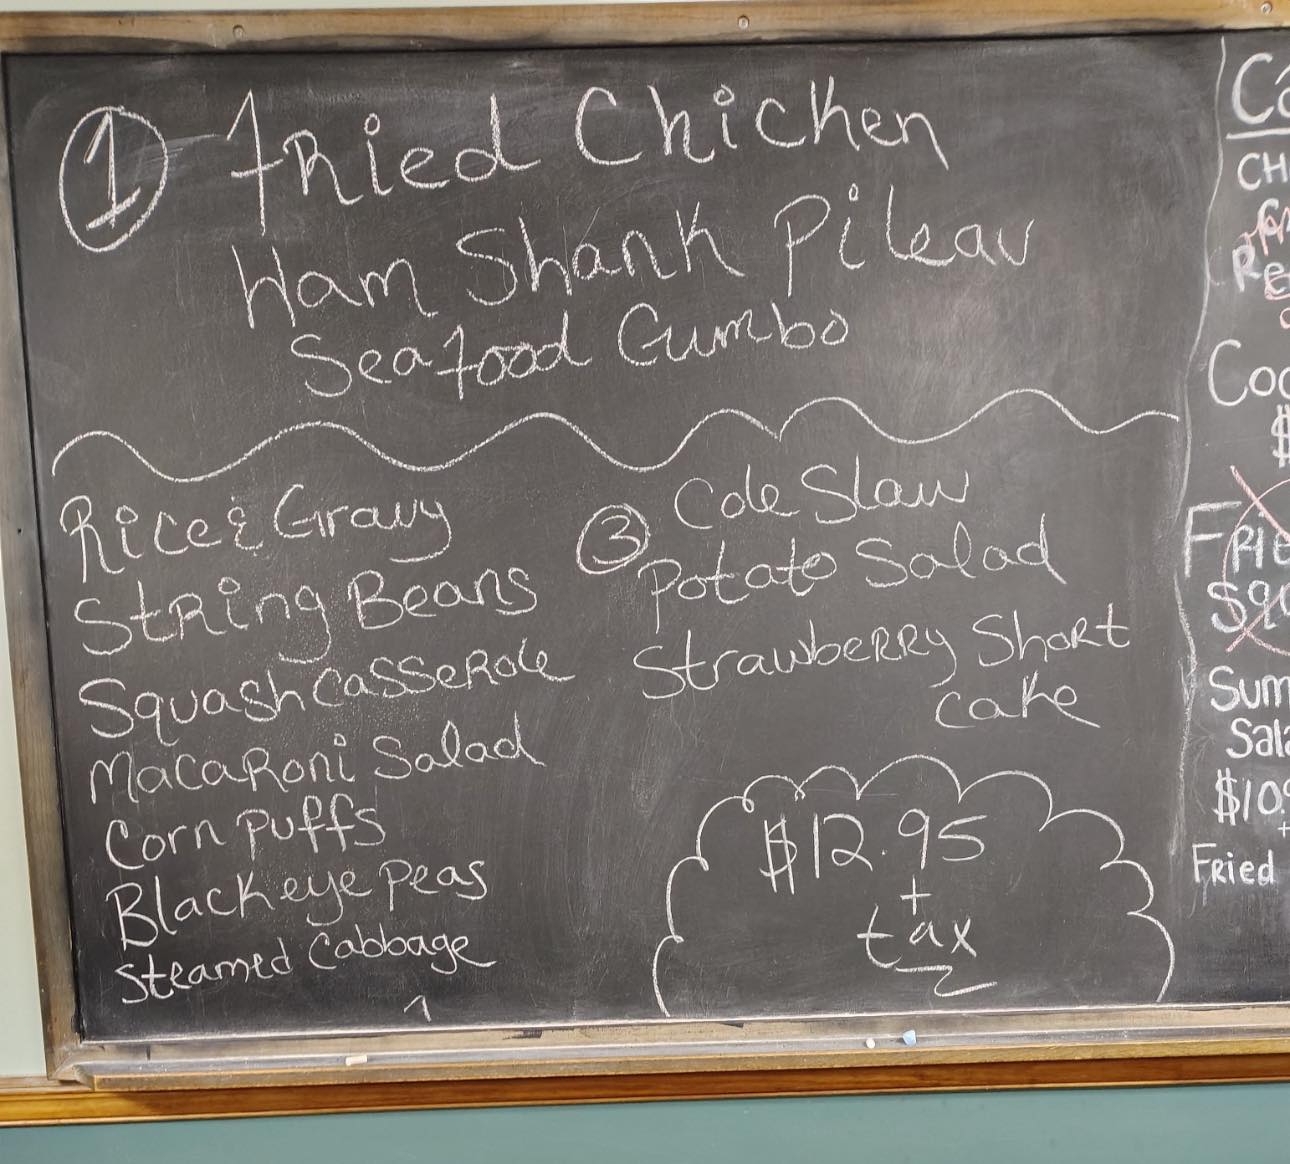 1 Fried Chicken
Ham Shank Pileau
Seafood Gumbo
Rice & Gravy
String Beans
Squash Casserole
Macaroni Salad
Corn Puffs
Blackeye Peas
Steamed Cabbage
3 Cole Slaw
Potato Salad
Strawberry Short
Cake
$12.95
+
tax
Sum
Sala
$10.9
+
Fried